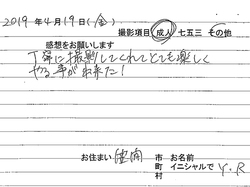 2019年4月19日(金)
撮影項目 成人 七五三 その他
感想をお願いします
丁寧に撮影してくれてとても楽しく
やる事が出来た!
お住まい
市 お名前
町 イニシャルで Y.R
村